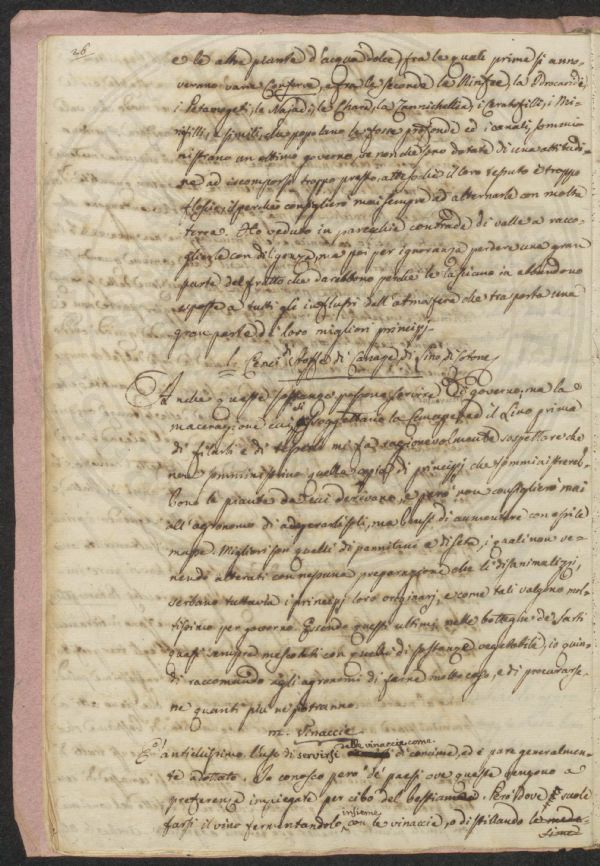 36
e le altre piante d'acqua dolce, fra le quali prime si anno-
verano varie Conferve, e fra le seconde le Ninfee, la Idrocaride,
i Potamogeti, le Najadi, le Chare, la Zannichellia, i Ceratofilli, i Mi-
riofilli, e simili, che popolano le fosse profonde ed i canali, sommi-
nistrano un ottimo governo, se non che sono dotate di una attitudi-
ne ad iscomporsi troppo presto, atteso che il loro tessuto è troppo
floscio, il perchè consiglierò mai sempre ad alternarle con molta
terra. Ho veduto in parecchie contrade di valle a racco-
glierle con diligenza, ma poi per ignoranza perdere una gran
parte del frutto che darebbono perchè le lasciano in abbandono
esposte a tutti gli influssi dell'atmosfera che trasporta una
gran parte de' loro migliori principj.
l. Cenci di Stoffe di Canape di Lino di Cotone
Sì nelle queste sostanze possono servire di governo, ma la
macerazione cui si assoggettano la Canape ed il Lino prima
di filarli e di tesserli mi fa ragionevolmente sospettare che
non somministrino quella copia di principj che somministrereb-
bono le piante da cui derivano, e però non consiglierò mai
all'agronomo di adoperarli soli, ma bensì di aumentare con essi le
masse. Migliori son quelli di pannilani e di seta, i quali non ve-
nendo alterati con nessuna preparazione che li disanimalizzi,
serbano tuttavia i principj loro originarj, e come tali valgono mol-
tissimo per governo. Essendo questi ultimi nelle botteghe de' sarti
quasi sempre mescolati con quelli di sostanze vegetabili, io quin-
di raccomando agli agronomi di farne molto caso, e di procurarse-
ne quanti più ne potranno.
m. Vinaccie
È antichissimo l'uso di servirsi delle vinaccie come di concime, ed è pare generalmen-
te adottato. Io conosco però de' paesi ove queste vengono a
preferenza impiegate per cibo del bestiame. Però dove si suole
farsi il vino fermentandolo insieme con le vinaccie, o distillando le mede-
sime